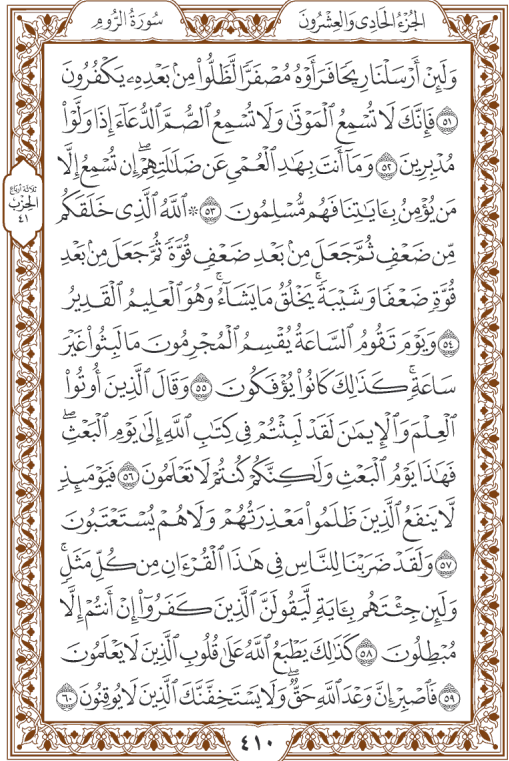 الجُزْءُ الحَادِى وَالعِشْرُونَ
سُورَةُ الرُّومِ
وَلَئِنْ أَرْسَلْنَا رِيحًا فَرَأَوْهُ مُصْفَرًّا لَّظَلُّوا۟ مِنۢ بَعْدِهِۦ يَكْفُرُونَ
٥١ فَإِنَّكَ لَا تُسْمِعُ ٱلْمَوْتَىٰ وَلَا تُسْمِعُ ٱلصُّمَّ ٱلدُّعَآءَ إِذَا وَلَّوْا۟
مُدْبِرِينَ ٥٢ وَمَآ أَنتَ بِهَـٰدِ ٱلْعُمْىِ عَن ضَلَـٰلَتِهِمْ ۖ إِن تُسْمِعُ إِلَّا
مَن يُؤْمِنُ بِـَٔايَـٰتِنَا فَهُم مُّسْلِمُونَ ٥٣ ۞ ٱللَّهُ ٱلَّذِى خَلَقَكُم
مِّن ضَعْفٍ ثُمَّ جَعَلَ مِنۢ بَعْدِ ضَعْفٍ قُوَّةً ثُمَّ جَعَلَ مِنۢ بَعْدِ
قُوَّةٍ ضَعْفًا وَشَيْبَةً ۚ يَخْلُقُ مَا يَشَآءُ ۖ وَهُوَ ٱلْعَلِيمُ ٱلْقَدِيرُ
٥٤ وَيَوْمَ تَقُومُ ٱلسَّاعَةُ يُقْسِمُ ٱلْمُجْرِمُونَ مَا لَبِثُوا۟ غَيْرَ
سَاعَةٍ ۚ كَذَٰلِكَ كَانُوا۟ يُؤْفَكُونَ ٥٥ وَقَالَ ٱلَّذِينَ أُوتُوا۟
ٱلْعِلْمَ وَٱلْإِيمَـٰنَ لَقَدْ لَبِثْتُمْ فِى كِتَـٰبِ ٱللَّهِ إِلَىٰ يَوْمِ ٱلْبَعْثِ ۖ
فَهَـٰذَا يَوْمُ ٱلْبَعْثِ وَلَـٰكِنَّكُمْ كُنتُمْ لَا تَعْلَمُونَ ٥٦ فَيَوْمَئِذٍ
لَّا يَنفَعُ ٱلَّذِينَ ظَلَمُوا۟ مَعْذِرَتُهُمْ وَلَا هُمْ يُسْتَعْتَبُونَ
٥٧ وَلَقَدْ ضَرَبْنَا لِلنَّاسِ فِى هَـٰذَا ٱلْقُرْءَانِ مِن كُلِّ مَثَلٍ ۚ
وَلَئِن جِئْتَهُم بِـَٔايَةٍ لَّيَقُولَنَّ ٱلَّذِينَ كَفَرُوٓا۟ إِنْ أَنتُمْ إِلَّا
مُبْطِلُونَ ٥٨ كَذَٰلِكَ يَطْبَعُ ٱللَّهُ عَلَىٰ قُلُوبِ ٱلَّذِينَ لَا يَعْلَمُونَ
٥٩ فَٱصْبِرْ إِنَّ وَعْدَ ٱللَّهِ حَقٌّ ۖ وَلَا يَسْتَخِفَّنَّكَ ٱلَّذِينَ لَا يُوقِنُونَ ٦٠
ثلاثة أرباع
الحزب
٤١
٤١٠